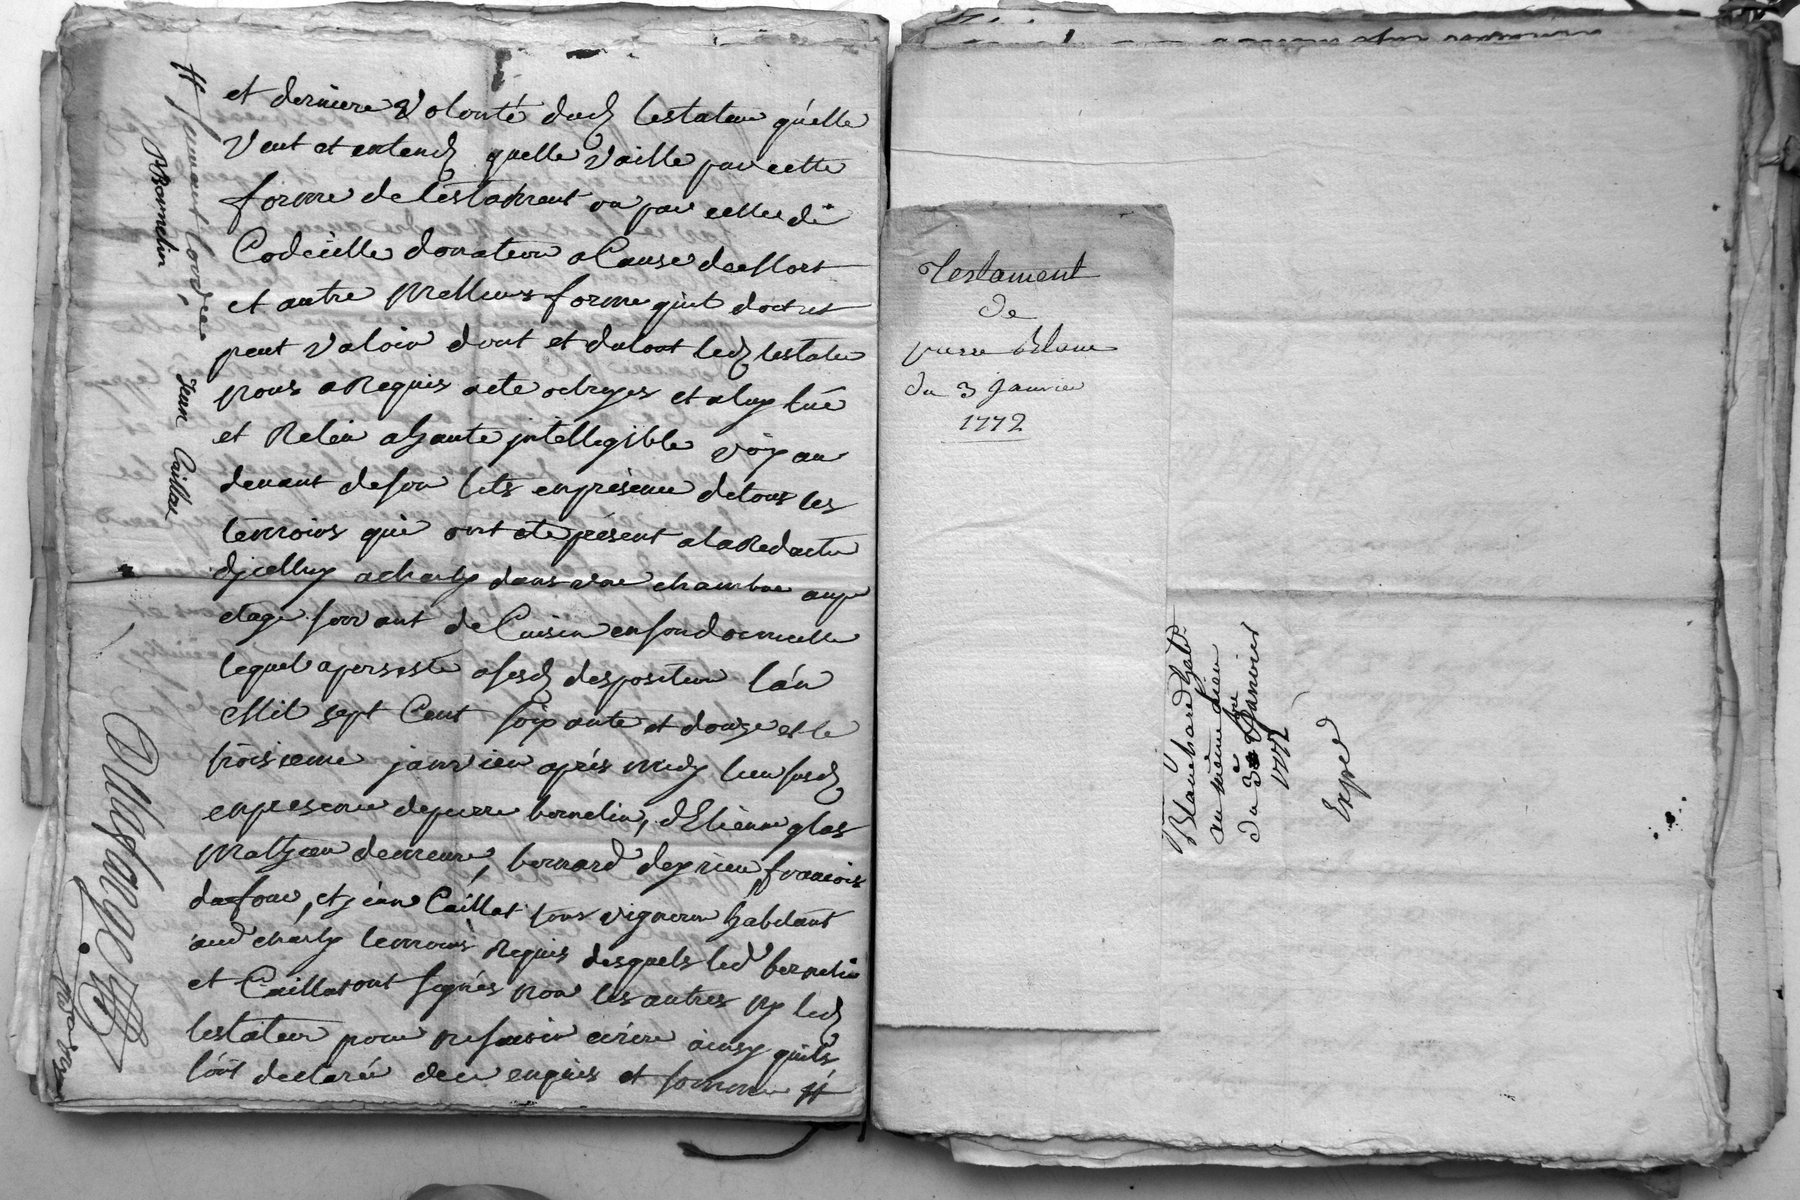 et derniere Volonté dud testateur qu'elle
Veut et entend quelle Vaille par cette
forme de testament ou par celles de
Codeiille donation a Cause de Mort
et autre Mellieurs forme quil doit et
peut Valoir dont et du tout led testateur
Nous a Requis acte octroyes et a luy lué
et Releu a haute intellegible voix au
devant de son lits en présence de tous les
temoins qui ont eté présent a la Redaction
dicelluy a charly dans une chambre au
etage servant de Cuisin en son domicille
lequel a persisté a sesd desposition l'an
Mil sept Cent soixante et douze et le
troisieme janvier aprés midy lieu susd
en presence de pierre bornelin, d'Etienne glas
Mathieu demeure, bernard deprieu, francois
dufour, et jean Caillat tous vigneron habitant
aud charly temoins Requis desquels led bornelin
et Caillat ont signés non les autres ny led
testateur pour ne savoir ecrire ainsy quils
l'ont declaré de ce enquis et somme #
# suivant l'ordre
Bornelin
Jean Caillat
Testament
de
pierre Blanc
du 3 janvier
1772
Blanchard habt
au même lieu
du 3e Janvier
1772
Expé